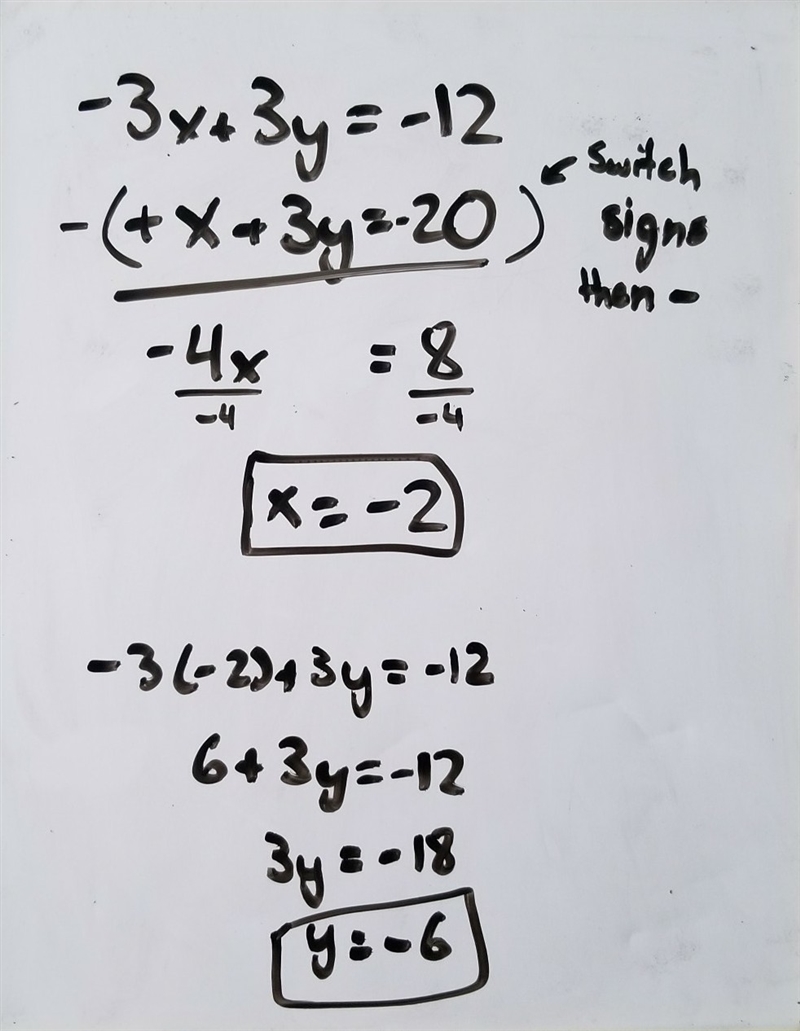 -3x+3y=-12
-(+x+3y=-20)
Switch
signs
then -
-4x = 8
-4 -4
x=-2
-3(-2)+3y=-12
6+3y=-12
3y=-18
y=-6